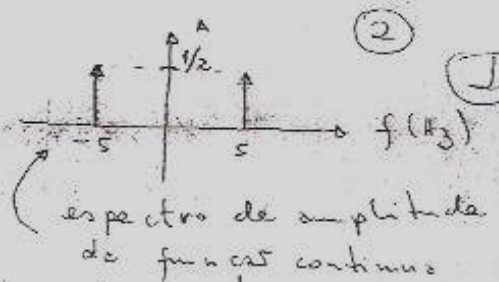 ②
A
1/2
f(Hz)
-5 5
espectro de amplitude
da função continua